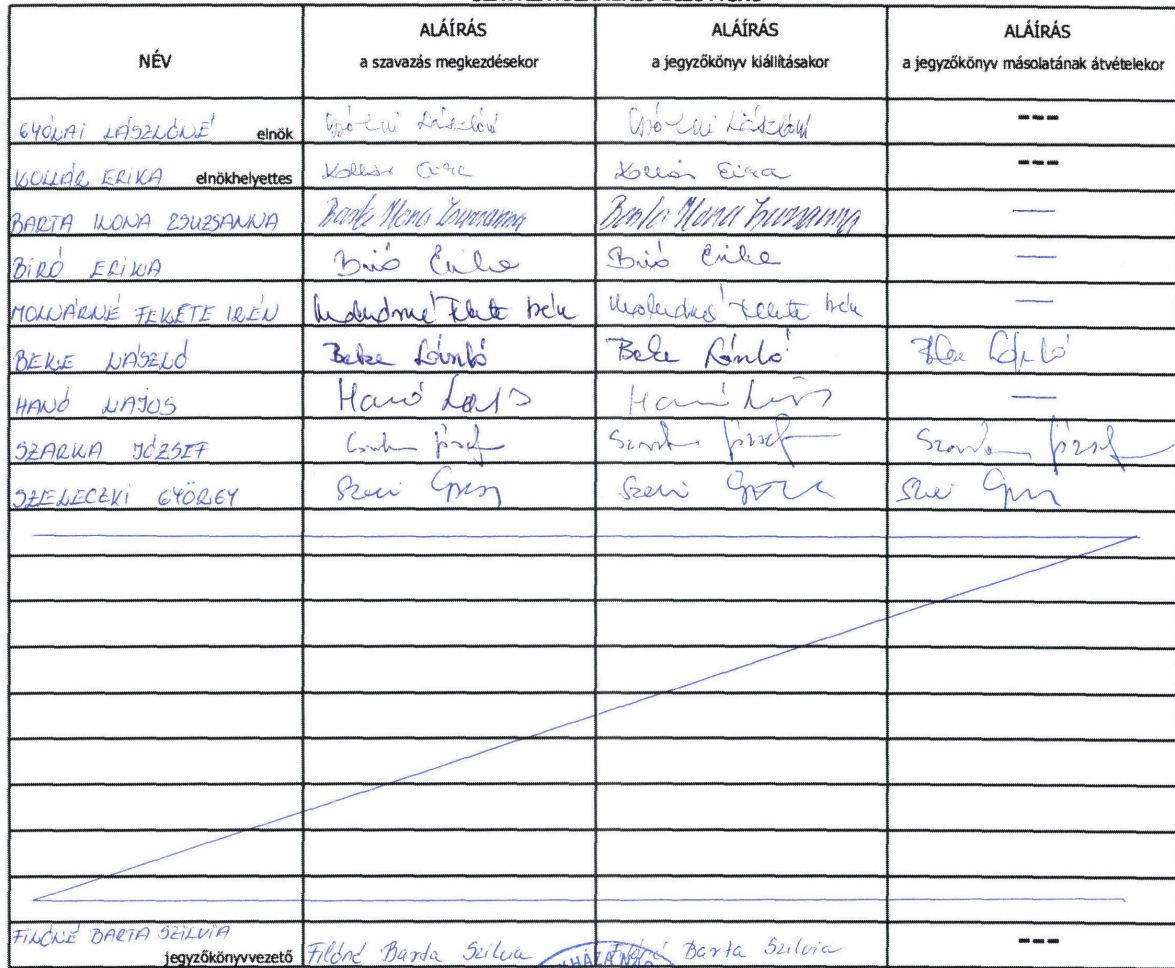 NÉV
ALÁÍRÁS
a szavazás megkezdésekor
ALÁÍRÁS
a jegyzőkönyv kiállításakor
ALÁÍRÁS
a jegyzőkönyv másolatának átvételekor
GYÓLAI LÁSZLÓNÉ elnök Gyólai Lászlóné Gyólai Lászlóné ---
KOLLÁR ERIKA elnökhelyettes Kollár Erika Kollár Erika ---
BARTA ILONA ZSUZSANNA Barta Ilona Zsuzsanna Barta Ilona Zsuzsanna —
BIRÓ ERIKA Biró Erika Biró Erika —
MOLNÁRNÉ FEKETE IRÉN Molnárné Fekete Irén Molnárné Fekete Irén —
BEKE LÁSZLÓ Beke László Beke László Beke László
HANÓ LAJOS Hanó Lajos Hanó Lajos —
SZARKA JÓZSEF Szarka József Szarka József Szarka József
SZELECZKI GYÖRGY
FILÓNÉ BARTA SZILVIA
jegyzőkönyvvezető Filóné Barta Szilvia Filóné Barta Szilvia ---